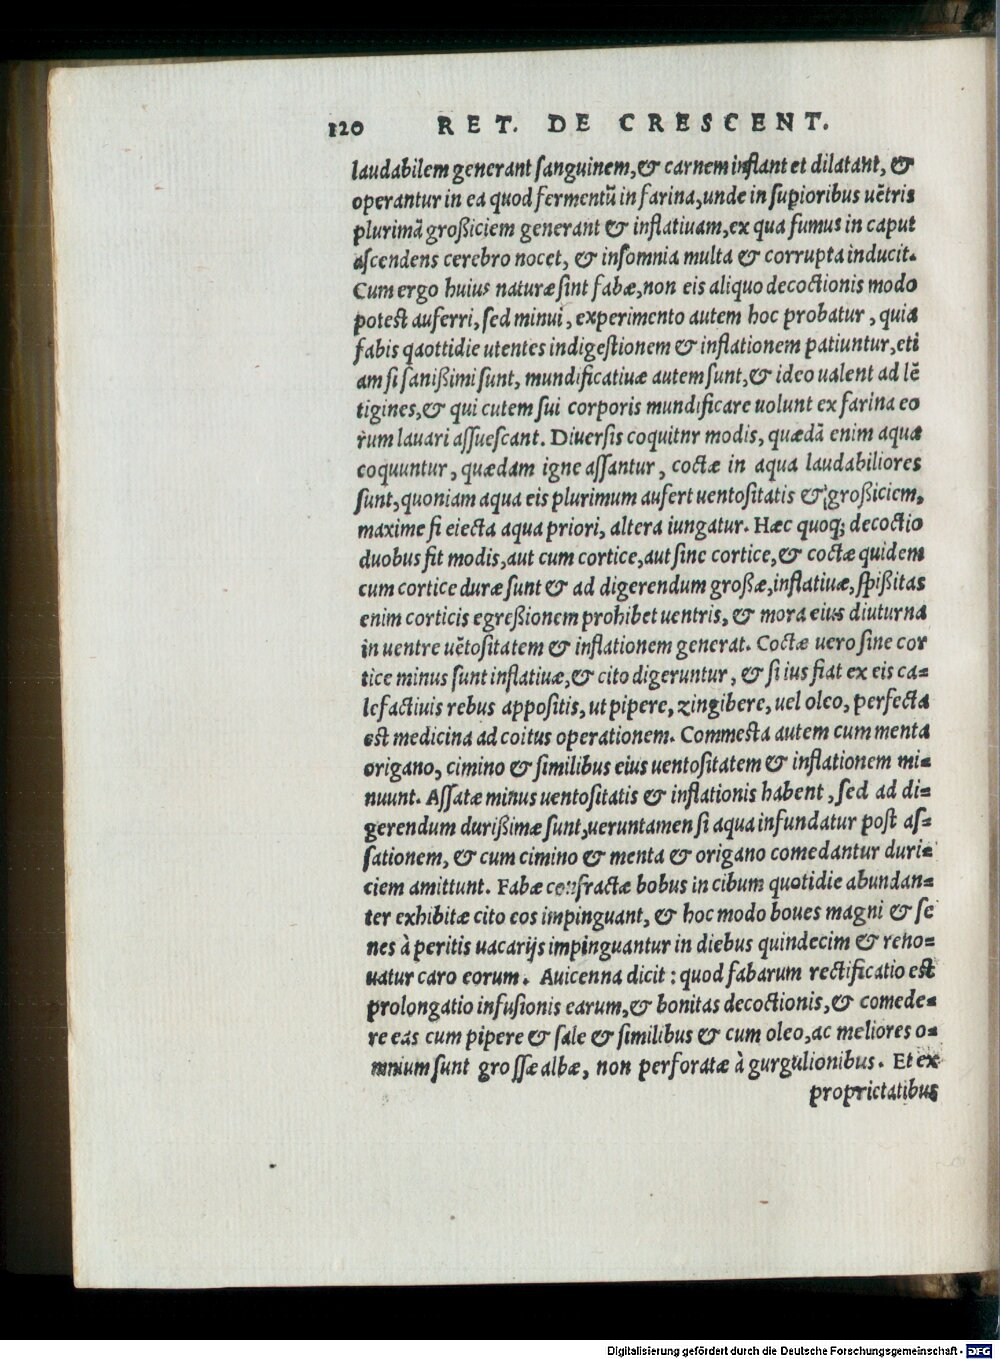 120 RET. DE CRESCENT.
laudabilem generant ſanguinem,& carnem inflant et dilatant, &
operantur in ea quod fermentū in farina,unde in ſupioribus uētris
plurimā großiciem generant & inflatiuam,ex qua fumus in caput
aſcendens cerebro nocet, & inſomnia multa & corrupta inducit.
Cum ergo huius naturæ ſint fabæ,non eis aliquo decoctionis modo
potest auferri, ſed minui, experimento autem hoc probatur, quia
fabis qaottidie utentes indigeſtionem & inflationem patiuntur,eti
am ſi ſanißimi ſunt, mundificatiuæ autem ſunt,& ideo ualent ad lē
tigines,& qui cutem ſui corporis mundificare uolunt ex farina eo
rum lauari aſſueſcant. Diuerſis coquitnr modis, quædā enim aqua
coquuntur, quædam igne aſſantur, coctæ in aqua laudabiliores
ſunt,quoniam aqua eis plurimum aufert uentoſitatis & großiciem,
maxime ſi eiecta aqua priori, altera iungatur. Hæc quoq; decoctio
duobus fit modis,aut cum cortice,aut ſine cortice,& coctæ quidem
cum cortice duræ ſunt & ad digerendum großæ,inflatiuæ,ſpißitas
enim corticis egreßionem prohibet uentris, & mora eius diuturna
in uentre uētoſitatem & inflationem generat. Coctæ uero ſine cor
tice minus ſunt inflatiuæ,& cito digeruntur, & ſi ius fiat ex eis ca=
lefactiuis rebus appoſitis, ut pipere, zingibere, uel oleo, perfecta
est medicina ad coitus operationem. Commeſta autem cum menta
origano, cimino & ſimilibus eius uentoſitatem & inflationem mi=
nuunt. Aſſatæ minus uentoſitatis & inflationis habent, ſed ad di=
gerendum durißimæ ſunt,ueruntamen ſi aqua infundatur poſt aſ=
ſationem, & cum cimino & menta & origano comedantur duri=
ciem amittunt. Fabæ confractæ bobus in cibum quotidie abundan=
ter exhibitæ cito eos impinguant, & hoc modo boues magni & ſe
nes à peritis uacarijs impinguantur in diebus quindecim & reno=
uatur caro eorum. Auicenna dicit : quod fabarum rectificatio est
prolongatio infuſionis earum,& bonitas decoctionis,& comede=
re eas cum pipere & ſale & ſimilibus & cum oleo,ac meliores o=
mnium ſunt groſſæ albæ, non perforatæ à gurgulionibus. Et ex
proprietatibus
Digitalisierung gefördert durch die Deutsche Forschungsgemeinschaft - DFG